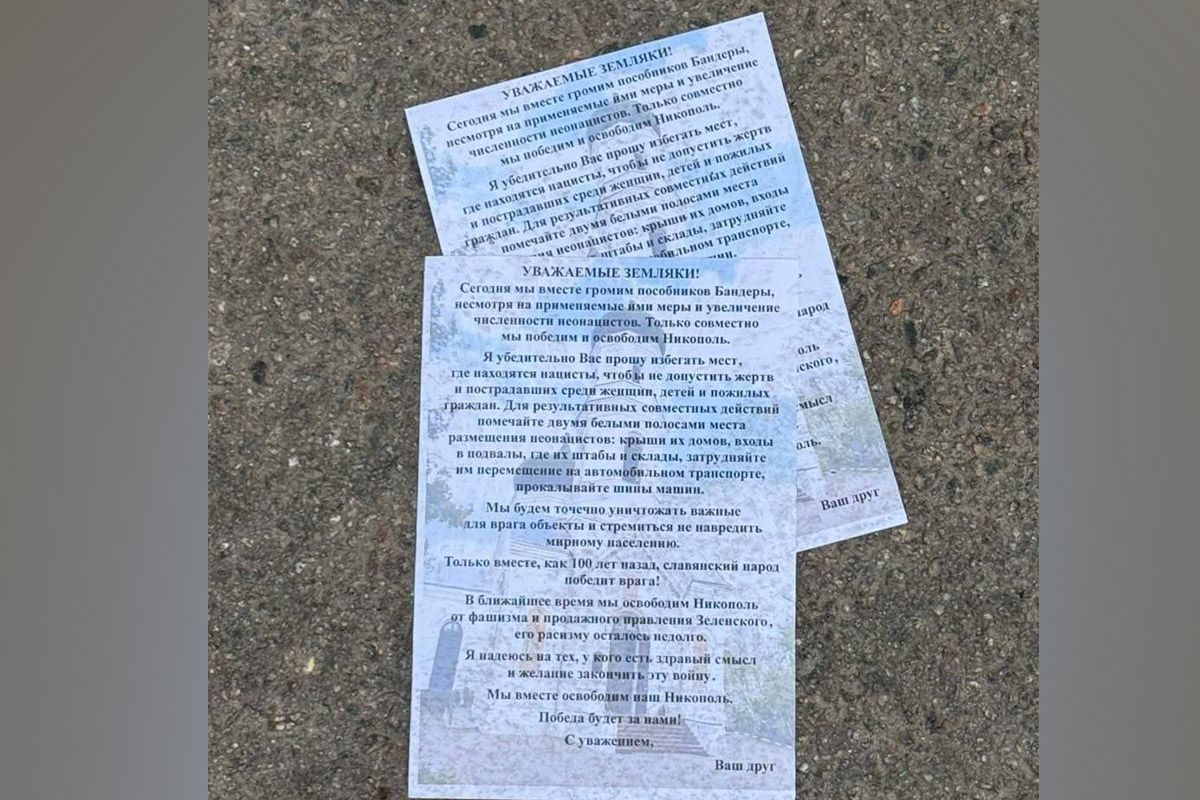 УВАЖАЕМЫЕ ЗЕМЛЯКИ!
Сегодня мы вместе громим пособников Бандеры,
несмотря на применяемые ими меры и увеличение
численности неонацистов. Только совместно
мы победим и освободим Никополь.
Я убедительно Вас прошу избегать мест,
где находятся нацисты, чтобы не допустить жертв
и пострадавших среди женщин, детей и пожилых
граждан. Для результативных совместных действий
помечайте двумя белыми полосами места
неонацистов: крыши их домов, входы
штабы и склады, затрудняйте
транспорте,
народ
смысл
Ваш друг
УВАЖАЕМЫЕ ЗЕМЛЯКИ!
Сегодня мы вместе громим пособников Бандеры,
несмотря на применяемые ими меры и увеличение
численности неонацистов. Только совместно
мы победим и освободим Никополь.
Я убедительно Вас прошу избегать мест,
где находятся нацисты, чтобы не допустить жертв
и пострадавших среди женщин, детей и пожилых
граждан. Для результативных совместных действий
помечайте двумя белыми полосами места
размещения неонацистов: крыши их домов, входы
в подвалы, где их штабы и склады, затрудняйте
им перемещение на автомобильном транспорте,
прокалывайте шины машин.
Мы будем точечно уничтожать важные
для врага объекты и стремиться не навредить
мирному населению.
Только вместе, как 100 лет назад, славянский народ
победит врага!
В ближайшее время мы освободим Никополь
от фашизма и продажного правления Зеленского,
его расизму осталось недолго.
Я надеюсь на тех, у кого есть здравый смысл
и желание закончить эту войну.
Мы вместе освободим наш Никополь.
Победа будет за нами!
С уважением,
Ваш друг